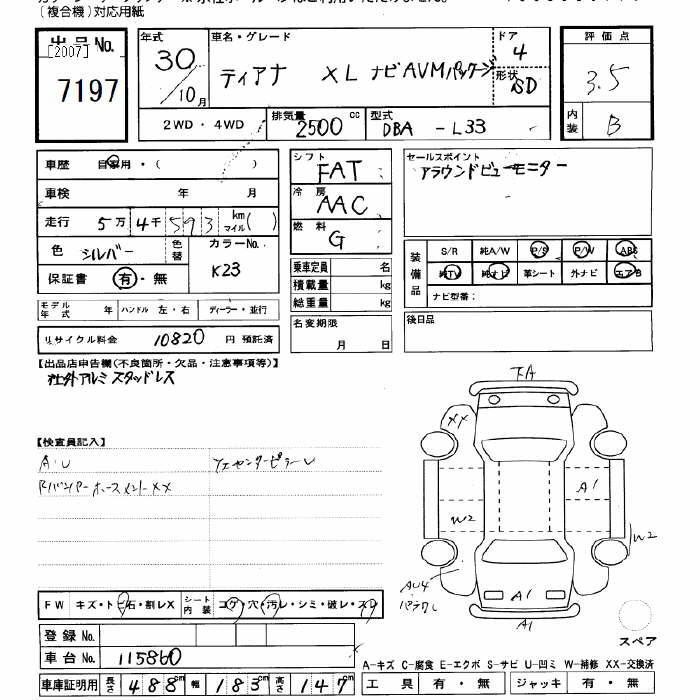 (複合機)対応用紙
出品No.
[2007]
7197
年式
30
10月
車名・グレード
ティアナ XL ナビAVMパッケージ
ドア
4
形状
SD
評価点
3.5
内装
B
2WD・4WD
排気量
2500 cc
型式
DBA - L33
車歴 自家用・( )
車検 年 月
走行 5万4千593 km マイル( )
色 シルバー 色替
カラーNo.
K23
保証書 有・無
モデル年式 年 ハンドル 左・右 ディーラー・並行
リサイクル料金 10820 円 預託済
シフト
FAT
冷房
AAC
燃料
G
乗車定員 名
積載量 kg
総重量 kg
名変期限
月 日
セールスポイント
アラウンドビューモニター
装備品
S/R 純A/W P/S P/W ABS
純TV 純ナビ 革シート 外ナビ エアB
ナビ型番:
後日品
【出品店申告欄(不良箇所・欠品・注意事項等)】
社外アルミスタッドレス
【検査員記入】
A.U
センターピラーU
XX
FA
A1
W2
W2
AU4
A1
A1
スペア
FW キズ・トビ石・割レX
シート内装 コゲ・穴・汚レ・シミ・破レ・スレ
登録No.
車台No. 115860
車庫証明用 長さ 488cm 幅 183cm 高さ 147cm
A-キズ C-腐食 E-エクボ S-サビ U-凹ミ W-補修 XX-交換済
工具 有・無 ジャッキ 有・無